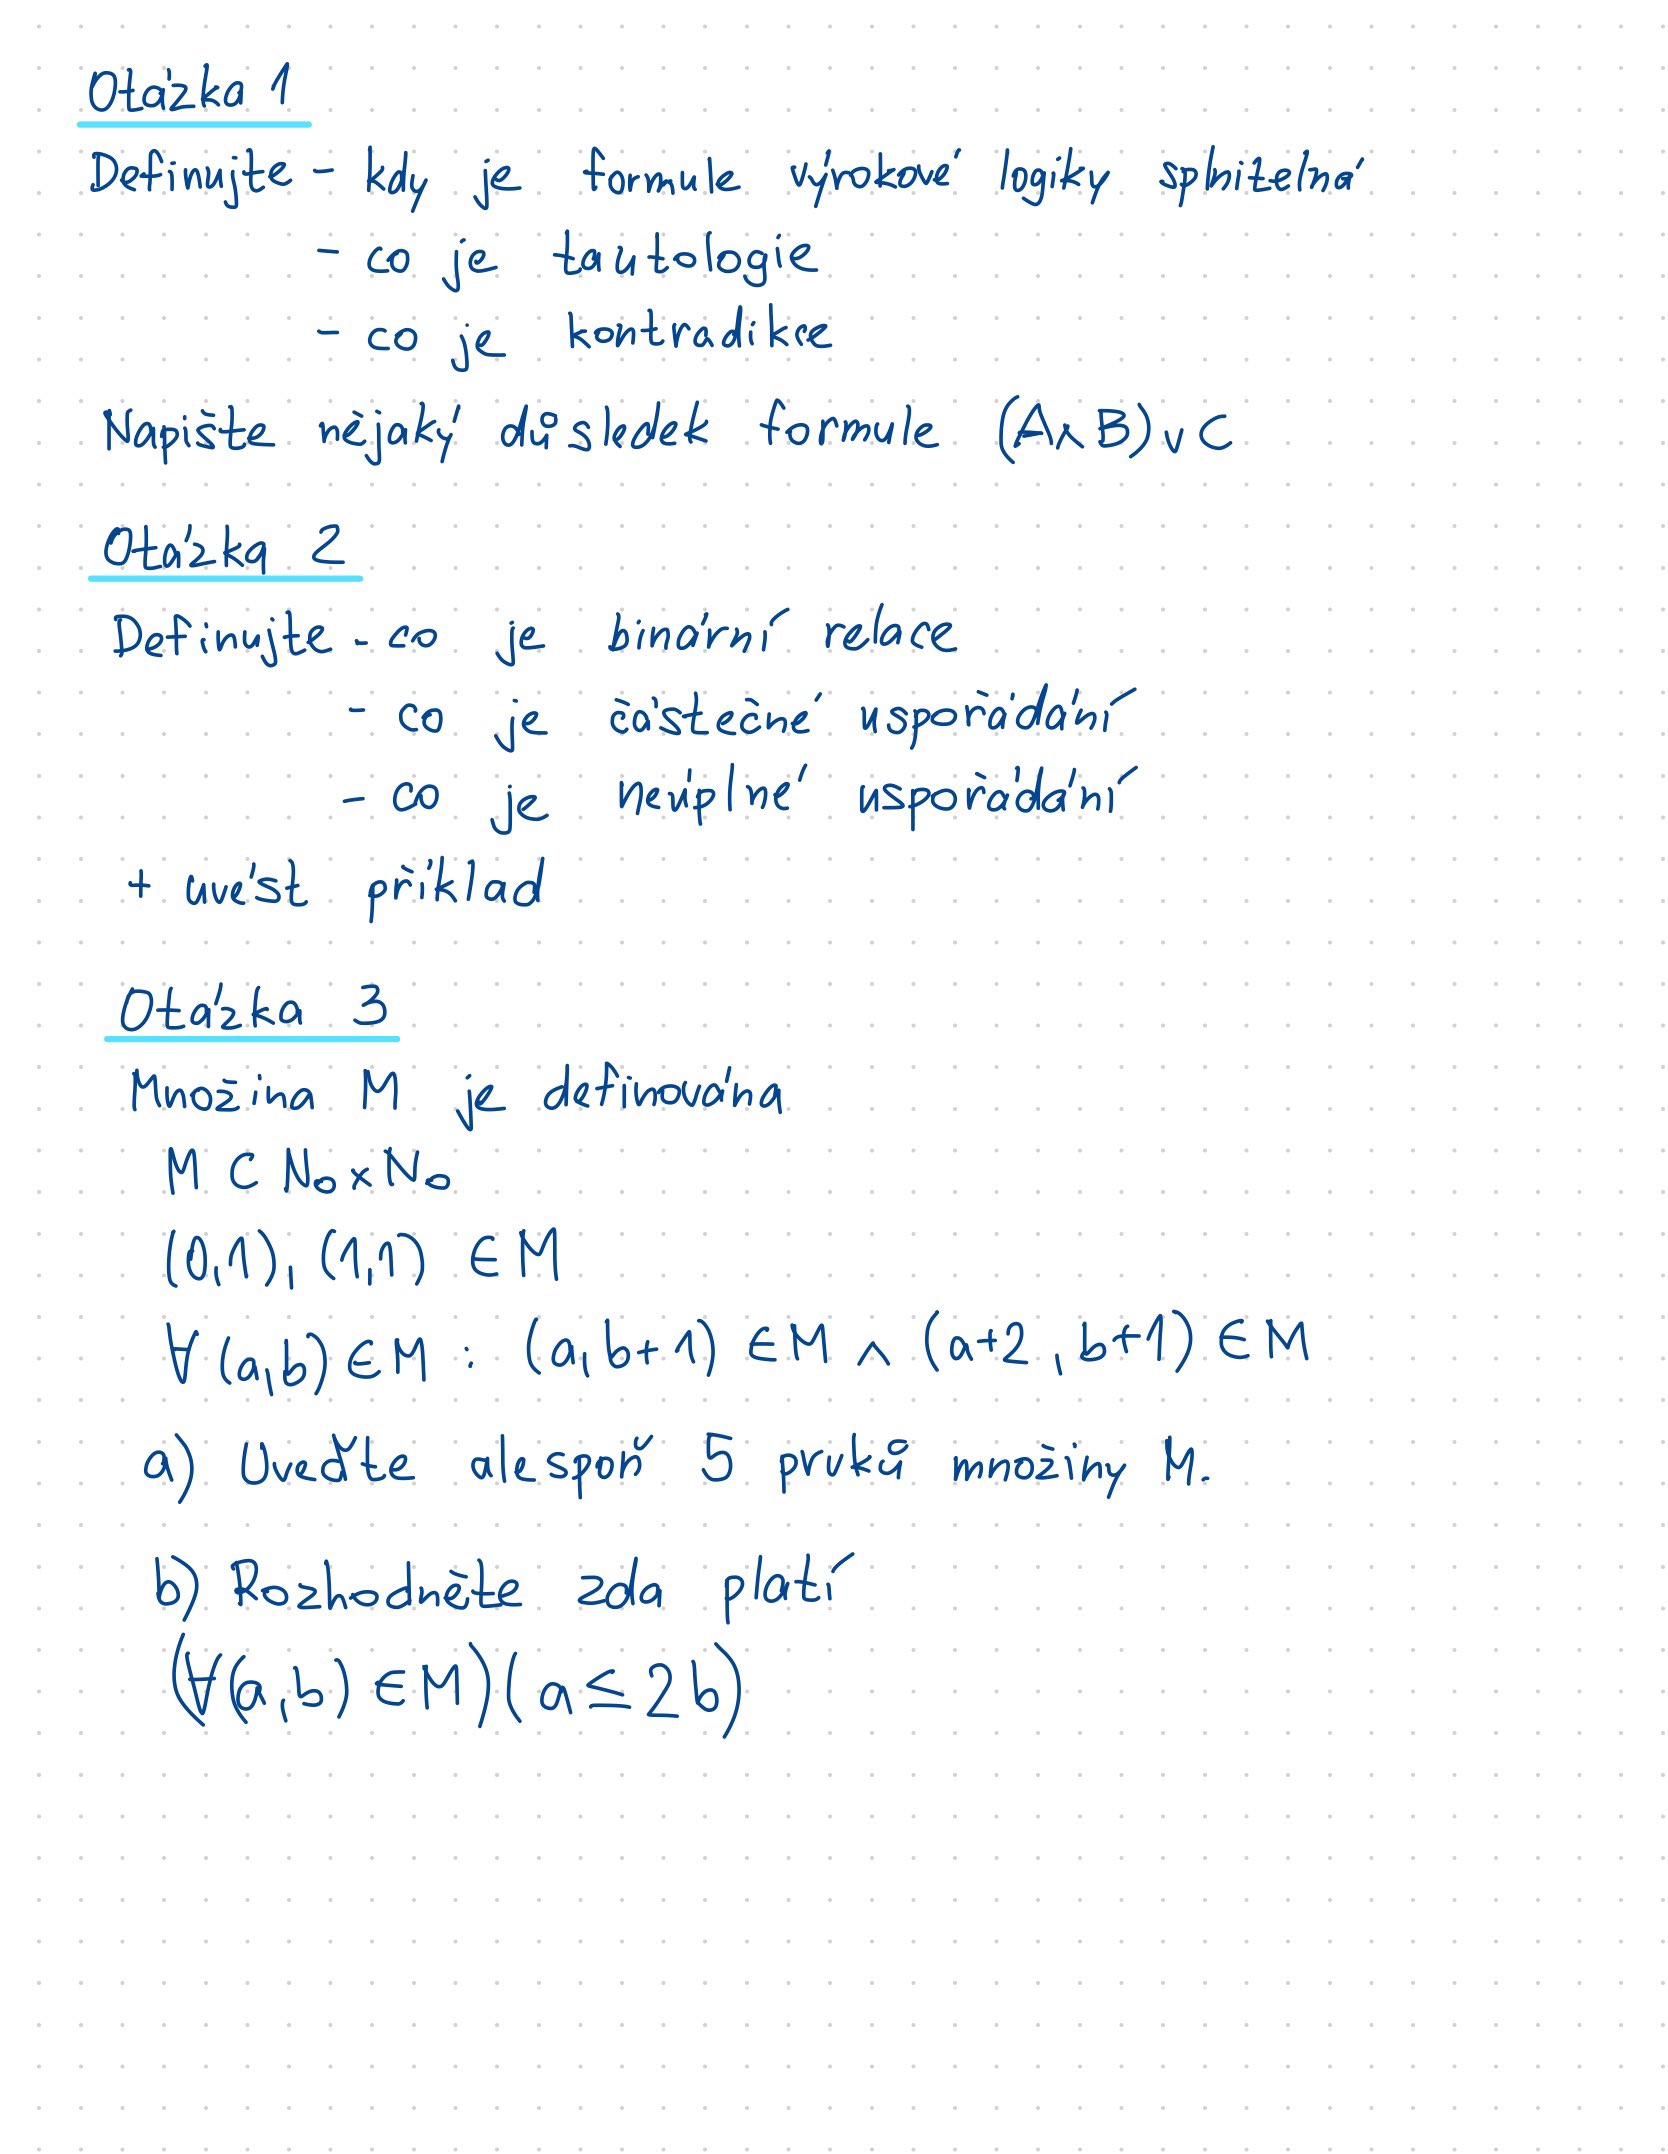 Otázka 1
Definujte - kdy je formule výrokové logiky splnitelná
- co je tautologie
- co je kontradikce
Napište nějaký důsledek formule (A∧B)∨C
Otázka 2
Definujte - co je binární relace
- co je částečné uspořádání
- co je neúplné uspořádání
+ uvést příklad
Otázka 3
Množina M je definována
M ⊂ N₀×N₀
(0,1), (1,1) ∈ M
∀(a,b)∈M : (a,b+1) ∈M ∧ (a+2,b+1) ∈ M
a) Uveďte alespoň 5 prvků množiny M.
b) Rozhodněte zda platí
(∀(a,b)∈M)(a≤2b)